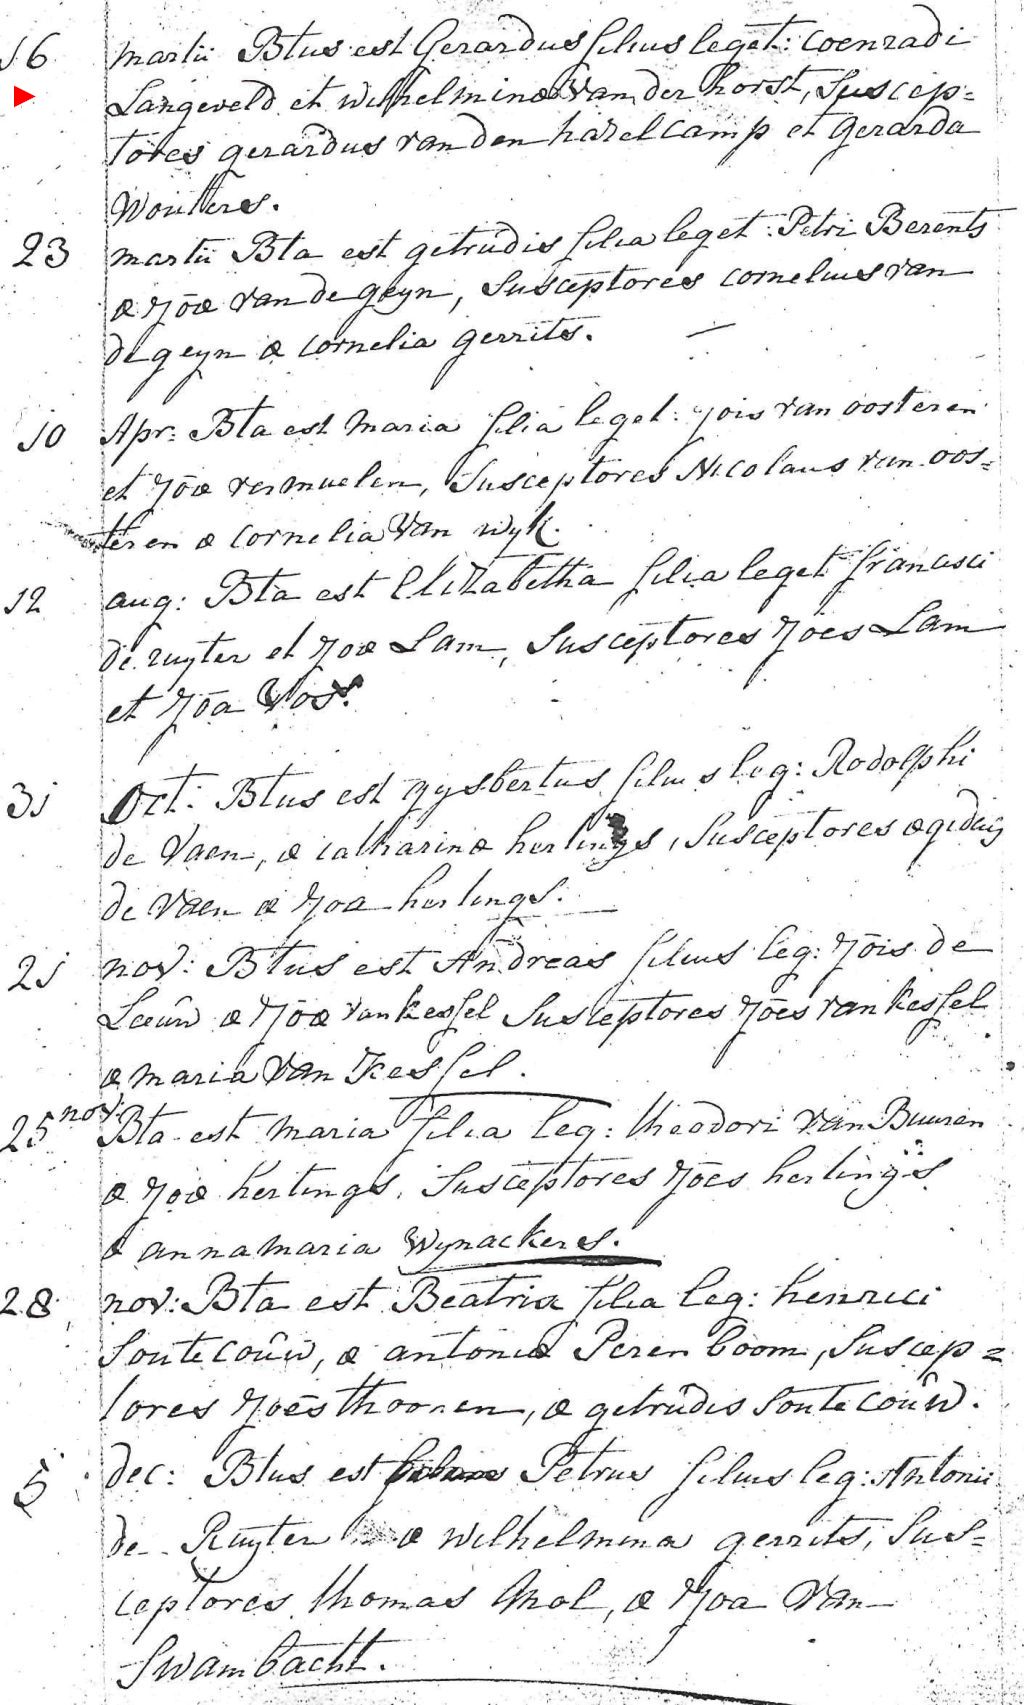 16 martii Btus est Gerardus filius leget: Coenradi
Langeveld et Wilhelminæ Van der horst, Suscep=
tores gerardus van den hazelcamp et Gerarda
Wouters.
23 martii Bta est getrudis filia leget: Petri Berents
& Jōæ van de geyn, Susceptores cornelius van
de geyn & cornelia gerrits.
10 Apr: Bta est Maria filia leget: Jois van oosteren
et Jōæ vermuelen, Susceptores Nicolaus van oos=
teren & cornelia Van wyk.
12 aug: Bta est Elizabetha filia leget francisci
de ruyter et Joæ Lam, Susceptores Jōes Lam
et Jōa Vos.
31 Oct: Btus est gysbertus filius leg: Rodolphi
de Vaen, & catharinæ herlings, Susceptores ægidius
de Vaen & Joa herlings.
21 nov: Btus est Andreas filius leg: Jōis de
Leeûw & Jōæ van kessel Susceptores Jōes van kessel
& maria Van Kessel.
25 nov: Bta est Maria filia leg: theodori Van Buuren
& Joæ hertings, Susceptores Jōes herlings
& anna maria Wynackers.
28 nov: Bta est Beatrix filia leg: henrici
Soutecoûw, & antoniæ Perenboom, Suscep=
tores Jōes thoonen, & getrûdis Soutecoûw.
5 dec: Btus est Petrus filius leg: Antonii
de Ruyter & Wilhelmina gerrits, Sus=
ceptores thomas Mol, & Joa Van
Swambacht.